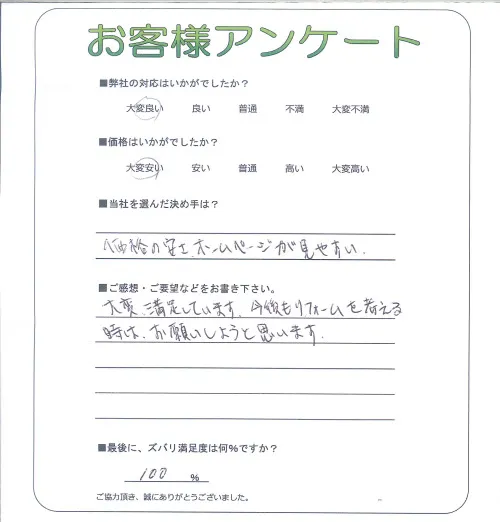 お客様アンケート
■弊社の対応はいかがでしたか？
大変良い 良い 普通 不満 大変不満
■価格はいかがでしたか？
大変安い 安い 普通 高い 大変高い
■当社を選んだ決め手は？
価格の安さ、ホームページが見やすい。
■ご感想・ご要望などをお書き下さい。
大変、満足しています。今後もリフォームを考える
時は、お願いしようと思います。
■最後に、ズバリ満足度は何%ですか？
100 %
ご協力頂き、誠にありがとうございました。